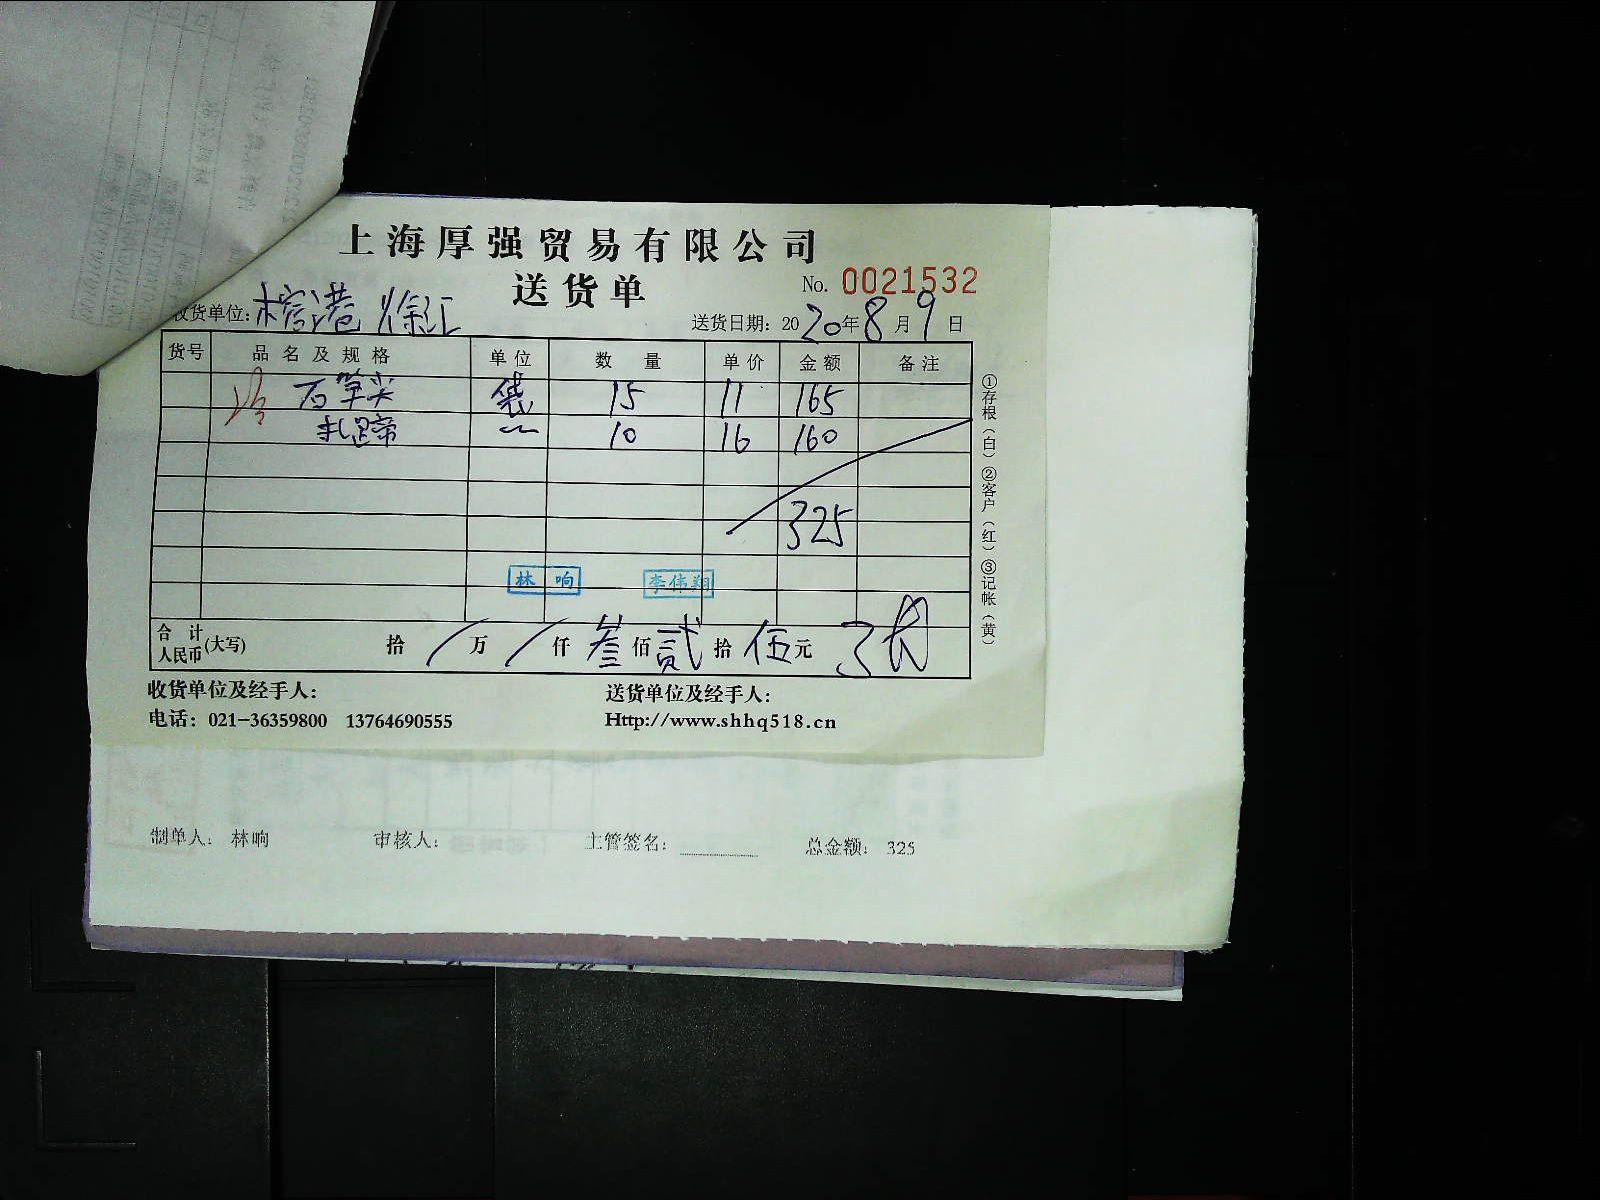 上海厚强贸易有限公司
送货单
No. 0021532
收货单位: 榕港 徐汇
送货日期: 2020年8月9日
货号 品名及规格 单位 数量 单价 金额 备注
石笋尖 袋 15 11 165
10 16 160
325
林响 李伟翔
合计人民币(大写) 拾 / 万 / 仟 叁 佰 贰 拾 伍 元
收货单位及经手人: 送货单位及经手人:
电话: 021-36359800 13764690555 Http://www.shhq518.cn
①存根(白)②客户(红)③记帐(黄)
制单人: 林响 审核人: 主管签名: 总金额: 325